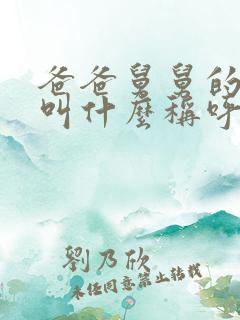 爸爸舅舅的
叫什麼稱呼
劉乃欣
未经同意禁止转载